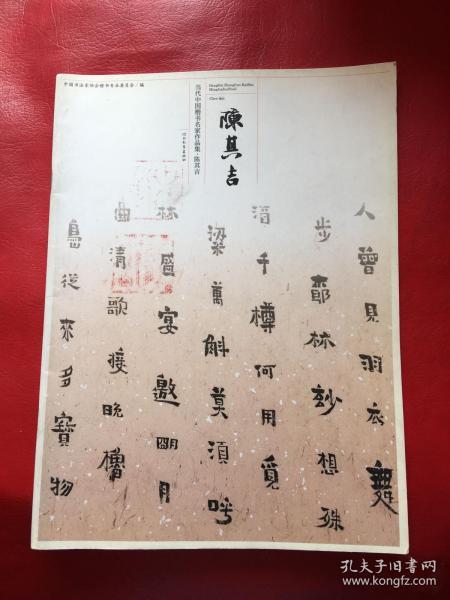 中国书法家协会楷书专业委员会/编
当代中国楷书名家作品集·陈其吉
陳其吉
人曾見羽衣舞
步林玅想殊
千樽何用覓
梁萬斛莫須呼
林盛宴邀朙月
曲清歌接晚櫓
島從來多寶物
孔夫子旧书网
www.kongfz.com